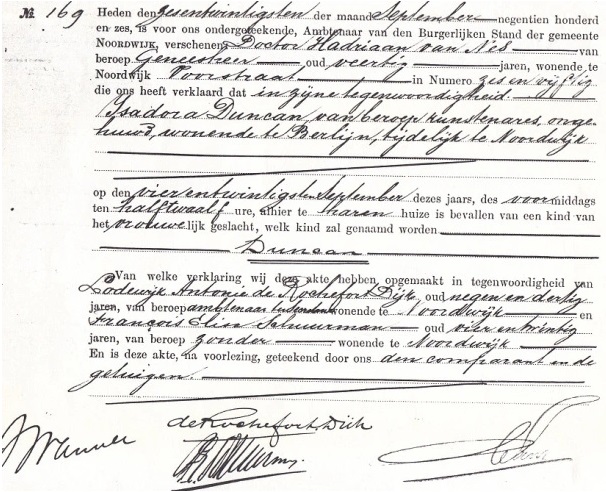 № 169 Heden den zesentwintigsten der maand September negentien honderd
en zes, is voor ons ondergeteekende, Ambtenaar van den Burgerlijken Stand der gemeente
NOORDWIJK, verschenen Doctor Hadriaan van Nes van
beroep Geneesheer oud veertig jaren, wonende te
Noordwijk Voorstraat in Numero zes en vijftig
die ons heeft verklaard dat in zijne tegenwoordigheid
Isadora Duncan, van beroep kunstenares, onge-
huwd, wonende te Berlijn, tijdelijk te Noordwijk
op den vierentwintigsten September dezes jaars, des voormiddags
ten halftwaalf ure, alhier te haren huize is bevallen van een kind van
het vrouwelijk geslacht, welk kind zal genaamd worden
Duncan
Van welke verklaring wij deze akte hebben opgemaakt in tegenwoordigheid van
Lodewijk Antonie de Rochefort Dijk oud negen en dertig
jaren, van beroep ambtenaar wonende te Noordwijk en
François Schuurman oud vier en twintig
jaren, van beroep zonder wonende te Noordwijk
En is deze akte, na voorlezing, geteekend door ons den comparant en de
getuigen.
de Rochefort Dijk